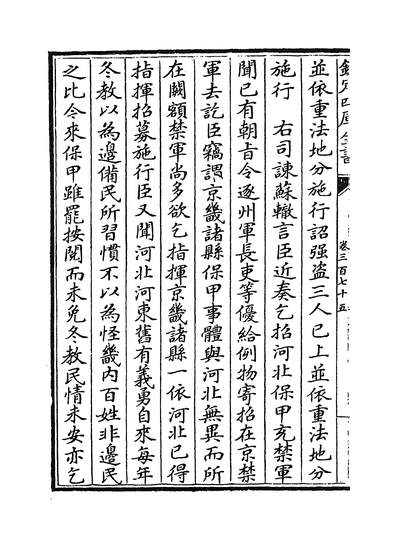 欽定四庫全書
卷三百七十五
並依重法地分施行詔强盗三人已上並依重法地分
施行　右司諫蘇轍言臣近奏乞招河北保甲充禁軍
聞已有朝旨令逐州軍長吏等優給例物寄招在京禁
軍去訖臣竊謂京畿諸縣保甲事體與河北無異而所
在闕額禁軍尚多欲乞指揮京畿諸縣一依河北已得
指揮招募施行臣又聞河北河東舊有義勇自來每年
冬教以為邊備民所習慣不以為怪畿内百姓非邊民
之比令來保甲雖罷按閲而未免冬教民情未安亦乞